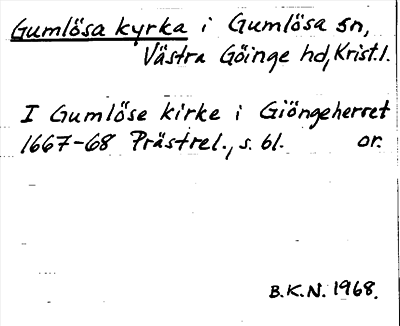 Gumlösa kyrka i Gumlösa sn,
Västra Göinge hd, Krist.l.
I Gumlöse kirke i Giöngeherret
1667-68 Prästrel., s. 61. or.
B.K.N. 1968.